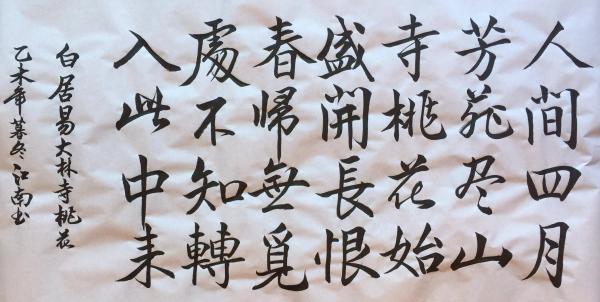 人間四月
芳菲尽山
寺桃花始
盛開長恨
春帰無覓
處不知轉
入此中来
白居易大林寺桃花
乙未年暮冬江南书